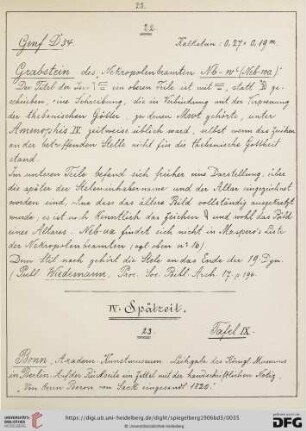 22.
22.
Genf D 34. Kalkstein: 0,27 × 0,19 m
Grabstein des Nekropolenbeamten Nb-wꜥ (Neb-wa).
Der Titel der im oberen Teile ist mit statt ge-
schrieben, eine Schreibung, die in Verbindung mit der Verpönung
der thebanischen Götter, zu denen Mwt gehörte, unter
Amenophis IV. zeitweise üblich ward, selbst wenn das Zeichen
an der betreffenden Stelle nicht für die thebanische Gottheit
stand.
Im unteren Teile befand sich früher eine Darstellung, über
die später der Steleninhaber und der Altar eingeritzt
worden sind, ohne dass das ältere Bild vollständig ausgekratzt
wurde; es ist noch kenntlich das Zeichen und wohl das Bild
eines Altares. Neb-wa findet sich nicht in Maspero's Liste
der Nekropolenbeamten (vgl. oben nº 16).
Dem Stil nach gehört die Stele an das Ende der 19. Dyn.
(Publ. Wiedemann, Proc. Soc. Bibl. Arch. 17, p. 196.
IV. Spätzeit.
23. Tafel IX.
Bonn, Academ. Kunstmuseum. Leihgabe des Königl. Museums
in Berlin. Auf der Rückseite ein Zettel mit der handschriftlichen Notiz
"Von Herrn Baron von Sack eingesandt 1820."
https://digi.ub.uni-heidelberg.de/diglit/spiegelberg1906bd3/0035
© Universitätsbibliothek Heidelberg
gefördert durch die
DFG
UNIVERSITÄTS-
BIBLIOTHEK
HEIDELBERG